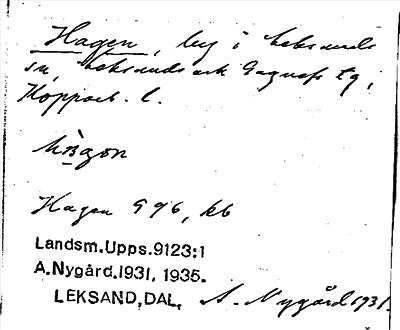 Hagen, by i Leksands
sn, Leksands och Gagnefs tg,
Kopparb. l.
Hagen 996, kb
Landsm.Upps.9123:1
A.Nygård.1931, 1935.
LEKSAND,DAL,
A. Nygård 1931.